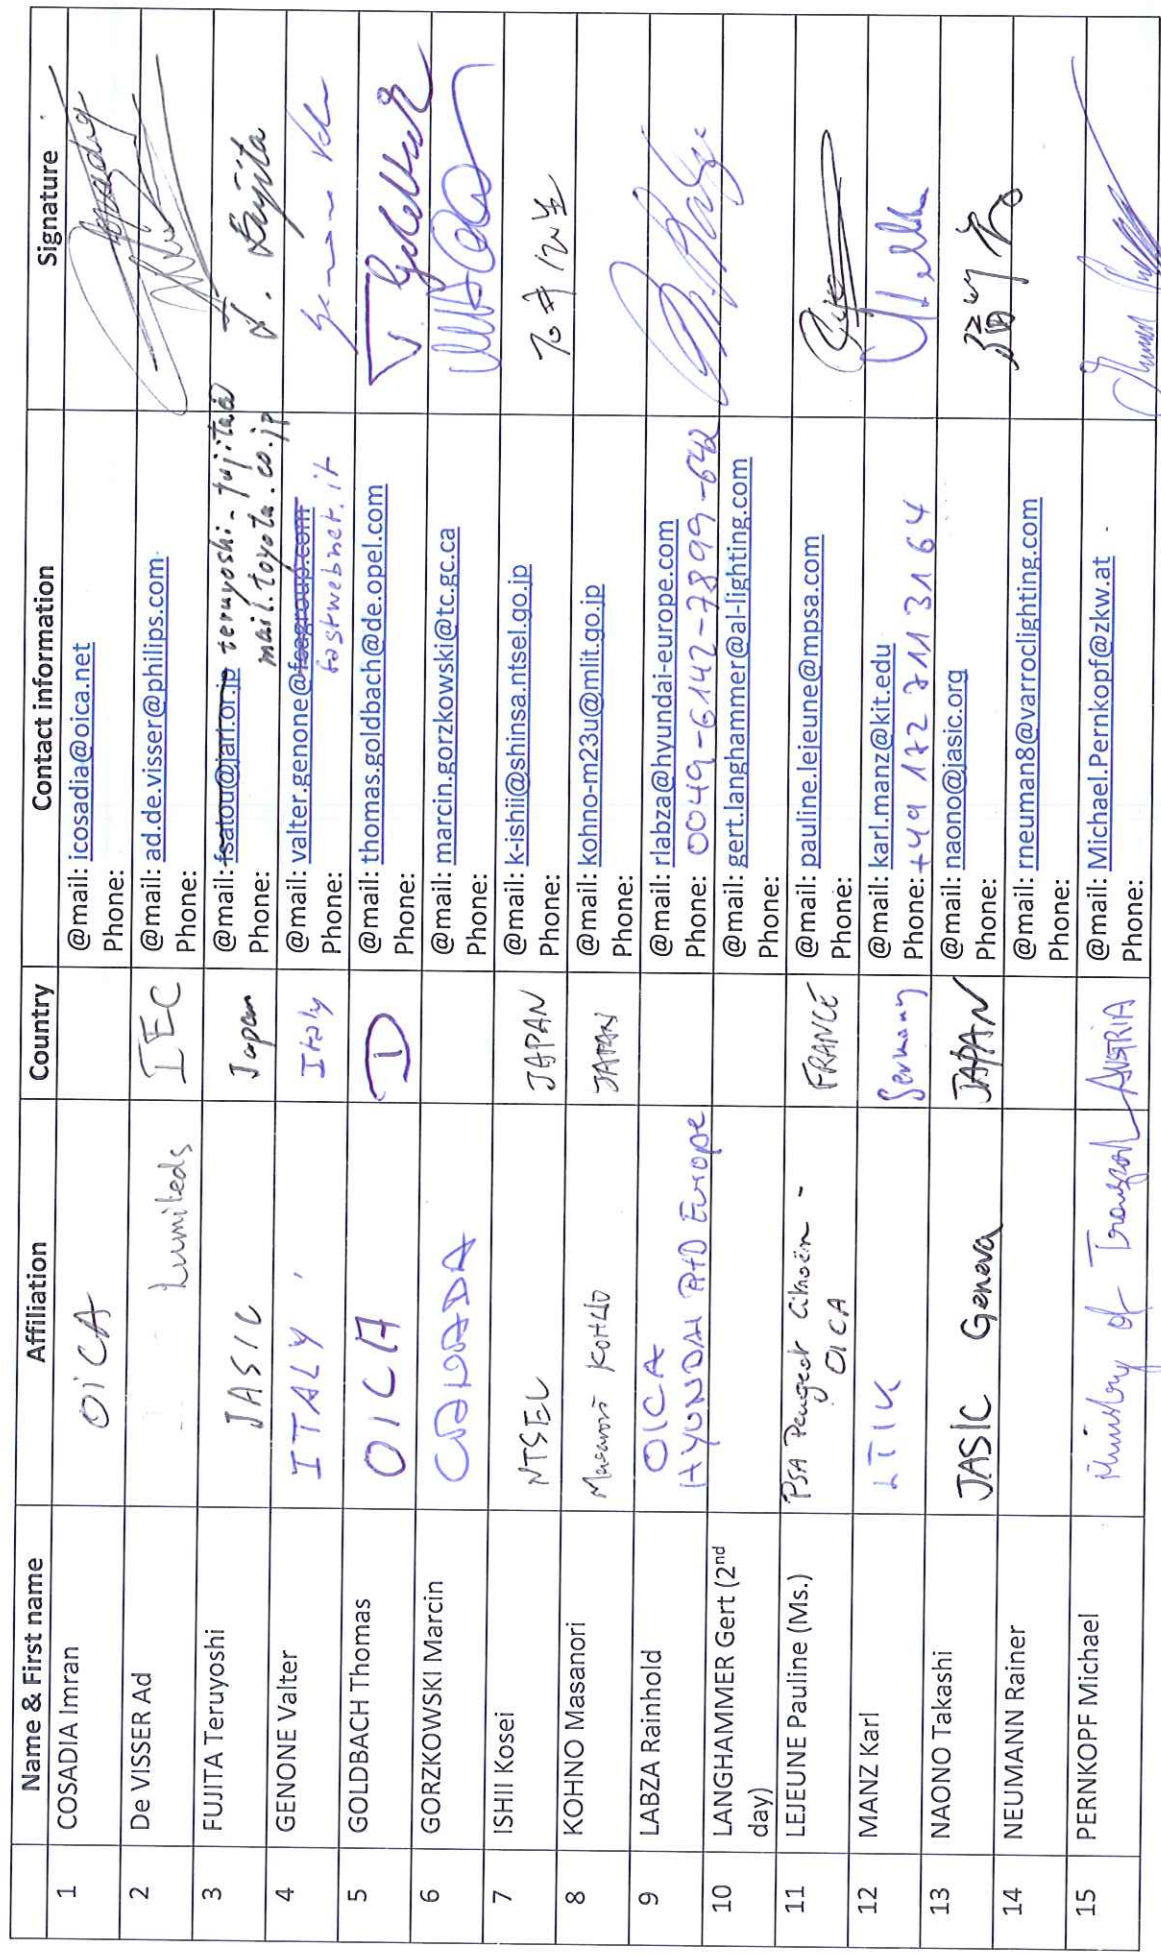 Name & First name Affiliation Country Contact information Signature
1 COSADIA Imran OICA @mail: icosadia@oica.net
Phone:
2 De VISSER Ad Lumileds IEC @mail: ad.de.visser@philips.com
Phone:
3 FUJITA Teruyoshi JASIC Japan @mail: fsatou@jari.or.jp teruyoshi_fujita@
Phone: mail.toyota.co.jp T. Fujita
4 GENONE Valter ITALY Italy @mail: valter.genone@fcagroup.com
Phone: fastwebnet.it
5 GOLDBACH Thomas OICA D @mail: thomas.goldbach@de.opel.com
Phone:
6 GORZKOWSKI Marcin CANADA @mail: marcin.gorzkowski@tc.gc.ca
Phone:
7 ISHII Kosei NTSEL JAPAN @mail: k-ishii@shinsa.ntsel.go.jp
Phone:
8 KOHNO Masanori Masanori KOHNO JAPAN @mail: kohno-m23u@mlit.go.jp
Phone:
9 LABZA Rainhold OICA @mail: rlabza@hyundai-europe.com
HYUNDAI R+D Europe Phone: 0049-6142-7899-642
10 LANGHAMMER Gert (2nd @mail: gert.langhammer@al-lighting.com
day) Phone:
11 LEJEUNE Pauline (Ms.) PSA Peugeot Citroën - FRANCE @mail: pauline.lejeune@mpsa.com
OICA Phone:
12 MANZ Karl LTIK Germany @mail: karl.manz@kit.edu
Phone: +49 172 711 31 64
13 NAONO Takashi JASIC Geneva JAPAN @mail: naono@jasic.org
Phone:
14 NEUMANN Rainer @mail: rneuman8@varroclighting.com
Phone:
15 PERNKOPF Michael Ministry of Transport AUSTRIA @mail: Michael.Pernkopf@zkw.at
Phone: